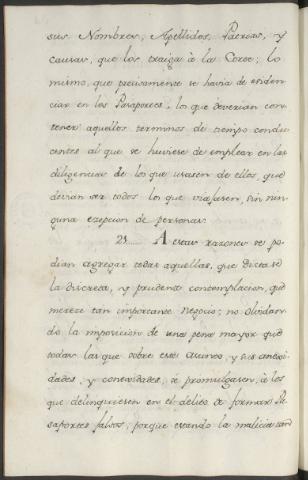 sus Nombres, Apellidos, Patrias, y
causas, que los traiga à la Corte; lo
mismo, que precisamente se havia de eviden-
ciar en los Pasaportes; los que deverian con-
tener aquellos terminos de tiempo condu-
centes al que se huviese de emplear en las
diligencias de los que usasen de ellos, que
devian ser todos los que viajasen, sin nin-
guna ezepcion de personas.
21. A estas razones se po-
dian agregar todas aquellas, que dictase
la discreta, y prudente contemplacion, que
merece tan importante negocio; no olvidan-
do la imposicion de una pena mayor que
todas las que sobre este asunto, y sus anexi-
dades, y conexidades, se promulgasen, à los
que delinquiesen en el delito de formar Pa-
saportes falsos; porque estando la malicia tan